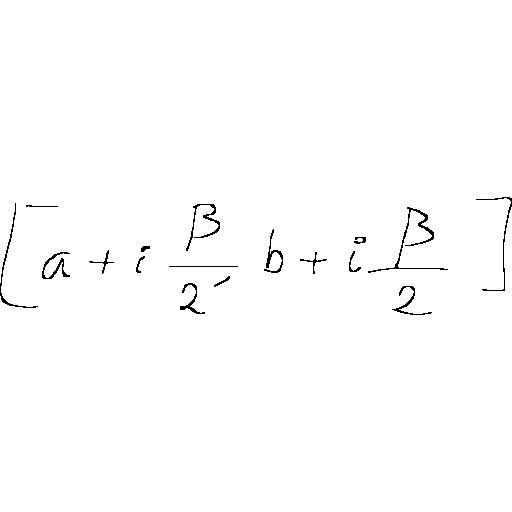 \left[ a + i \frac{\beta}{2}, b + i \frac{\beta}{2} \right]